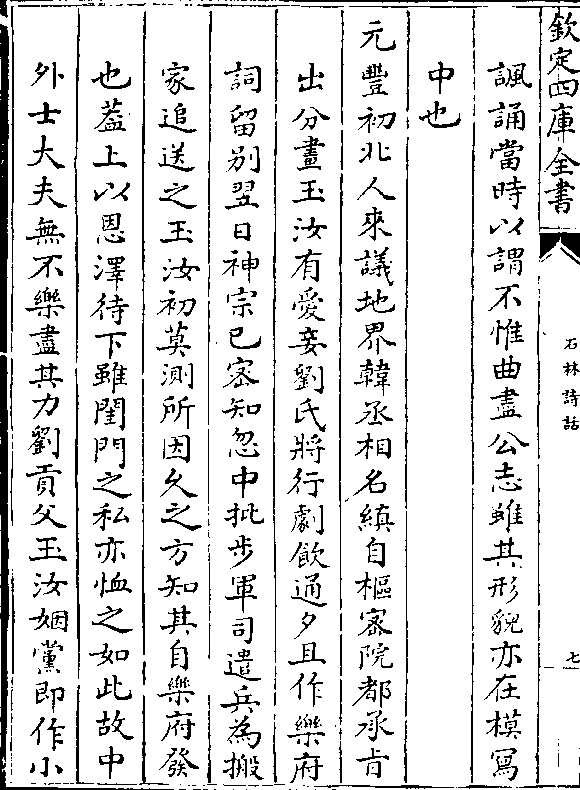 欽定四庫全書
石林詩話
七
諷誦當時以謂不惟曲盡公志雖其形貌亦在模寫
中也
元豐初北人來議地界韓丞相名縝自樞宻院都承㫖
出分畫玉汝有愛妾劉氏將行劇飲通夕且作樂府
詞留别翌日神宗已宻知忽中批步軍司遣兵為搬
家追送之玉汝初莫測所因久之方知其自樂府發
也葢上以恩澤待下雖閨門之私亦恤之如此故中
外士大夫無不樂盡其力劉貢父玉汝姻黨即作小